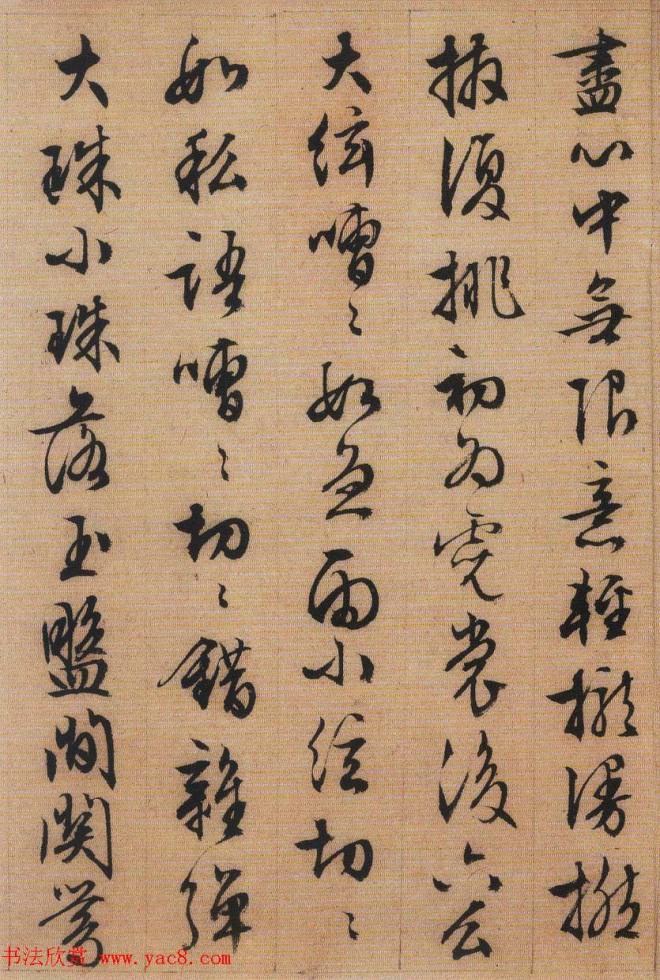 盡心中無限意輕攏慢撚
抹復挑初為霓裳後六么
大絃嘈〻如急雨小絃切〻
如私語嘈〻切〻錯雜彈
大珠小珠落玉盤間關鶯
书法欣赏 www.yac8.com